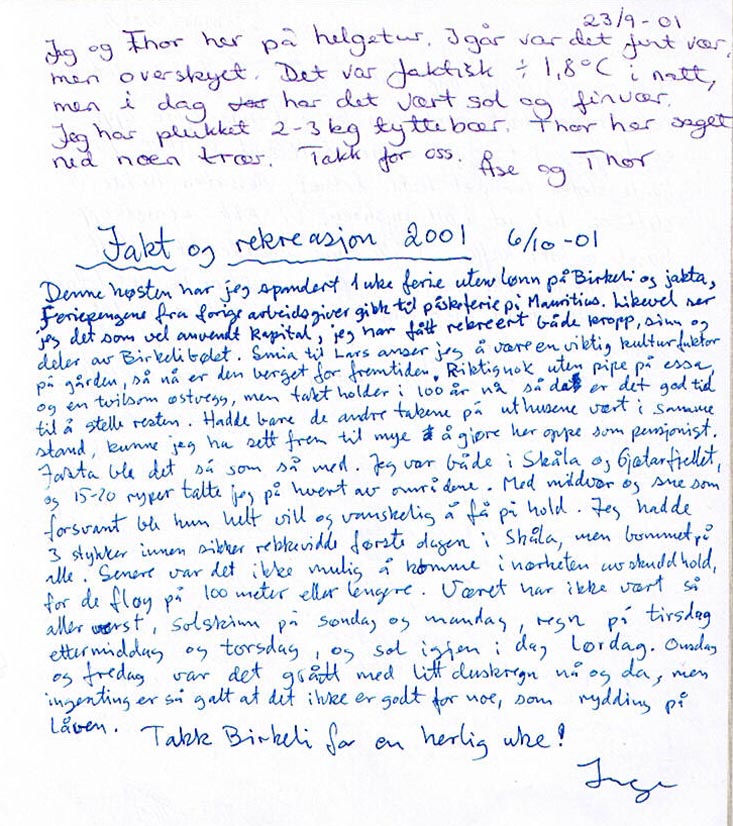 23/9-01
Jeg og Thor her på helgetur. Igår var det fint vær,
men overskyet. Det var faktisk ÷ 1,8°C i natt,
men i dag har det vært sol og finvær.
Jeg har plukket 2-3 kg tyttebær. Thor har saget
ned noen trær. Takk for oss. Åse og Thor
Jakt og rekreasjon 2001 6/10-01
Denne høsten har jeg spandert 1 uke ferie uten lønn på Birkeli og jakta,
Feriepengene fra forige arbeidsgiver gikk til påskeferie på Mauritius. Likevel ser
jeg det som vel anvendt kapital, jeg har fått rekreert både kropp, sinn og
deler av Birkelibølet. Smia til Lars anser jeg å være en viktig kulturfaktor
på gården, så nå er den berget for fremtiden. Riktignok uten pipe på essa,
og en tvilsom østvegg, men takt holder i 100 år nå så da er det god tid
til å stelle resten. Hadde bare de andre takene på uthusene vært i samme
stand, kunne jeg ha sett frem til mye å gjøre her oppe som pensjonist.
Jakta ble det så som så med. Jeg var både i Skåla og Gjetarfjellet,
og 15-20 ryper talte jeg på hvert av områdene. Med mildvær og snø som
forsvant ble hun helt vill og vanskelig å få på hold. Jeg hadde
3 stykker innen sikker rekkevidde første dagen i Skåla, men bommet på
alle. Senere var det ikke mulig å komme i nærheten av skuddhold,
for de fløy på 100 meter eller lengre. Været har ikke vært så
aller verst, solskinn på søndag og mandag, regn på tirsdag
ettermiddag og torsdag, og sol igjen i dag lørdag. Onsdag
og fredag var det grått med litt duskregn nå og da, men
ingenting er så galt at det ikke er godt for noe, som rydding på
låven. Takk Birkeli for en herlig uke!
Inge